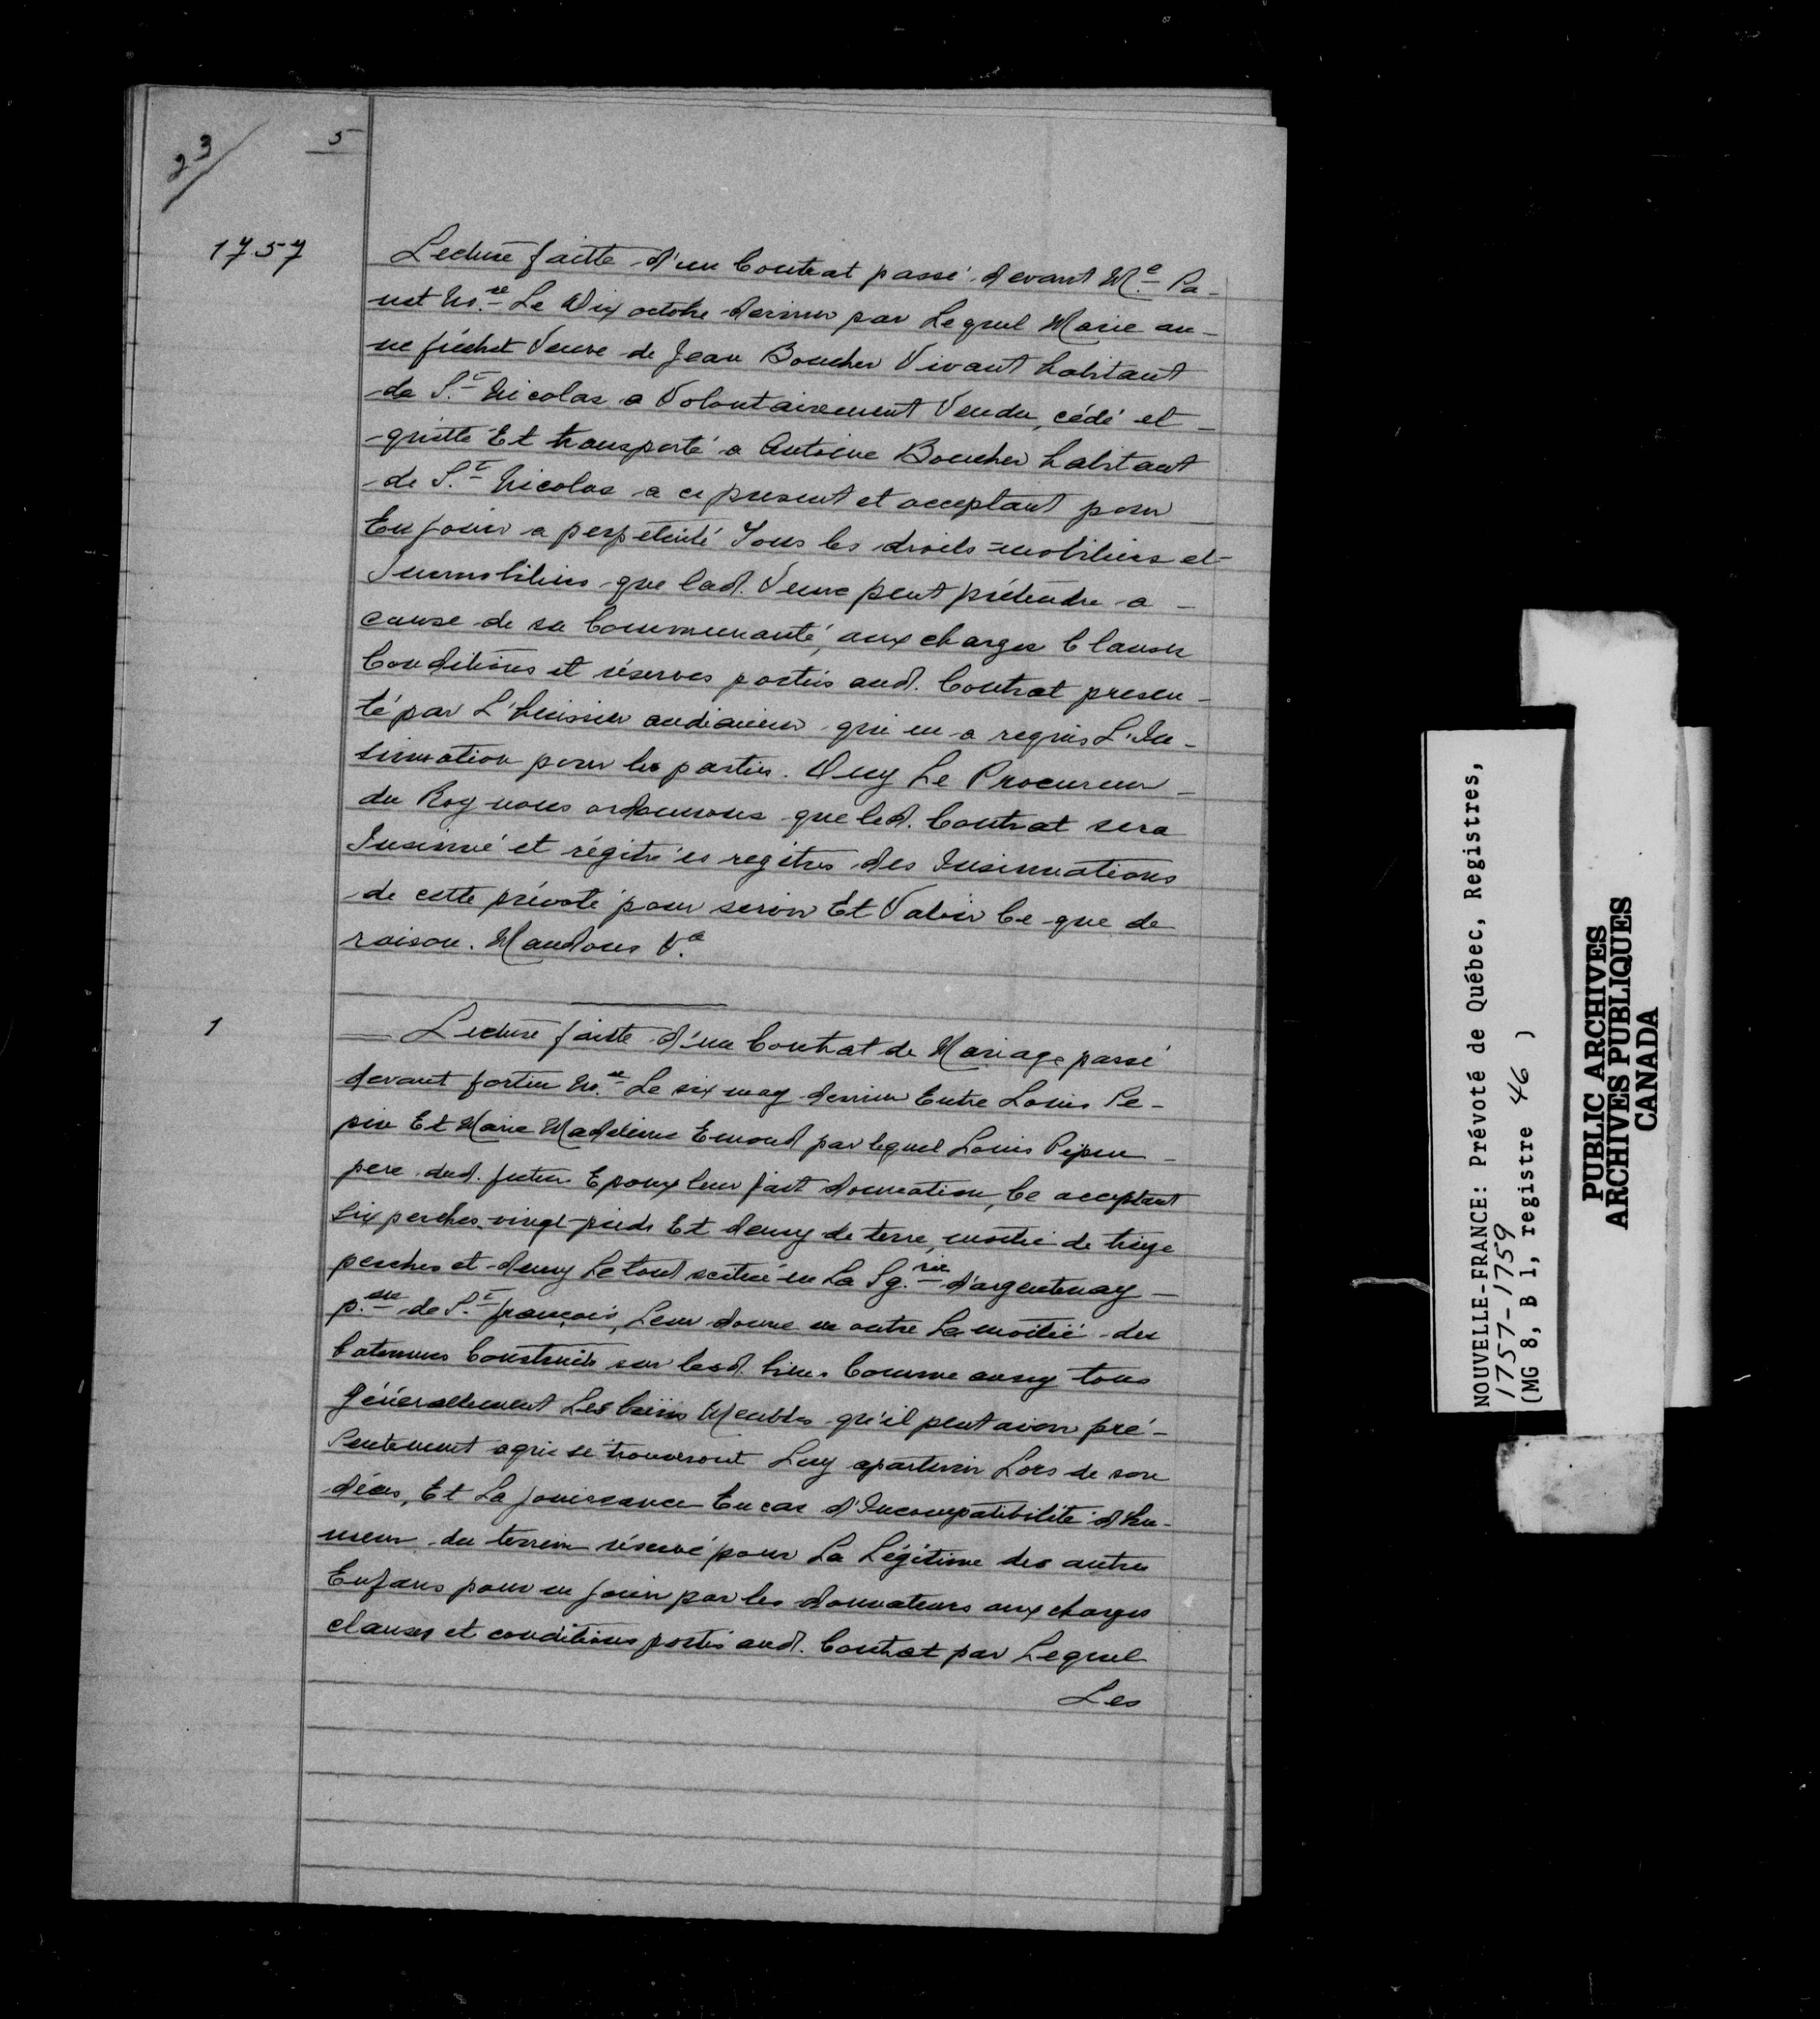 23/
5
1757
Lecture faitte d'un Contrat passé devant Me Pa-
net No.re Le Dix octobre dernier par Lequel Marie an-
ne fréchet Veuve de Jean Boucher Vivant habitant
de St Nicolas a Volontairement Vendu, cédé et
quitté Et transporté a Antoine Boucher habitant
de St Nicolas a ce present et acceptant pour
En jouir a perpétuité Tous les droits mobiliers et
Immobiliers que lad. Veuve peut prétendre a
cause de sa Communauté, aux charges Clauses
Conditions et réserves portéis aud. Contrat presen-
té par L'huissier audiancier qui en a requis L'In-
sinuation pour les parties. Ouy Le Procureur
du Roy nous ordonnons que led. Contrat sera
Insinué et régitré es regitres des Insinuations
de cette prévoté pour servir Et Valoir Ce que de
raison. Mandons &a
1
Lecture faitte d'un Contrat de Mariage passé
devant fortin No.re Le six may dernier Entre Louis Pe-
pin Et Marie Madeleine Emond par lequel Louis Pepin
pere dud. futur Epoux leur fait donnation, Ce acceptant
Six perches vingt pieds Et demy de terre, moitié de treize
perches et demy Le tout scitué en La Sg.rie d'argentenay
p.sse de St françois, Leur donne en outre La moitié des
batimens Construits sur lesd. lieux Comme aussy tous
généralement Les biens Meubles qu'il peut avoir pré-
sentement & qui se trouveront Luy apartenir Lors de son
déces, Et La jouissance En cas d'Incompatibilité d'hu-
meur du terrein réservé pour La Légitime des autres
Enfans pour en jouir par les donnateurs aux charges
clauses et conditions portés aud. Contrat par Lequel
Les
NOUVELLE-FRANCE: Prévoté de Québec, Registres,
1757-1759
(MG 8, B 1, registre 46 )
PUBLIC ARCHIVES
ARCHIVES PUBLIQUES
CANADA